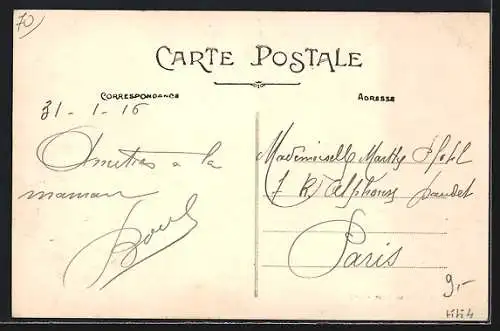 70
CARTE POSTALE
CORRESPONDANCE
ADRESSE
31 - 1 - 16
à la
maman
Mademoiselle Marthe
7 R Alphonse Daudet
Paris
9,-